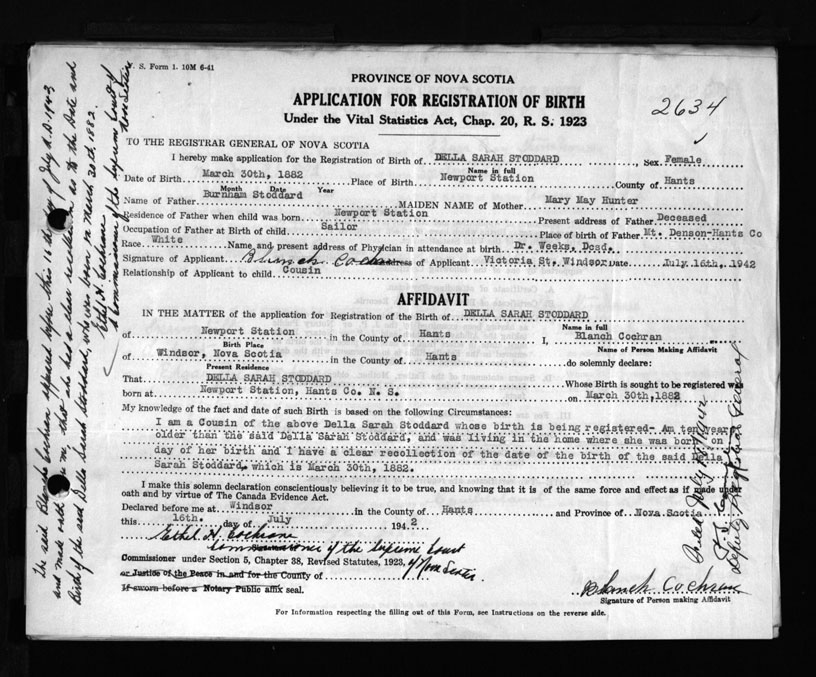 V. S. Form 1. 10M 6-41
PROVINCE OF NOVA SCOTIA
APPLICATION FOR REGISTRATION OF BIRTH
Under the Vital Statistics Act, Chap. 20, R. S. 1923
2634
TO THE REGISTRAR GENERAL OF NOVA SCOTIA
I hereby make application for the Registration of Birth of DELLA SARAH STODDARD, Sex Female
Name in full
Date of Birth March 30th, 1882 Place of Birth Newport Station County of Hants
Month Date Year
Name of Father Burnham Stoddard MAIDEN NAME of Mother Mary May Hunter
Residence of Father when child was born Newport Station Present address of Father Deceased
Occupation of Father at Birth of child Sailor Place of birth of Father Mt. Denson-Hants Co
Race White Name and present address of Physician in attendance at birth Dr. Weeks, Dcsd.
Signature of Applicant Blanch Cochran Address of Applicant Victoria St. Windsor Date July 16th, 1942
Relationship of Applicant to child Cousin
AFFIDAVIT
IN THE MATTER of the application for Registration of the Birth of DELLA SARAH STODDARD
Name in full
of Newport Station in the County of Hants I, Blanch Cochran
Birth Place Name of Person Making Affidavit
of Windsor, Nova Scotia in the County of Hants do solemnly declare:
Present Residence
That DELLA SARAH STODDARD Whose Birth is sought to be registered was
born at Newport Station, Hants Co. N. S. on March 30th, 1882
My knowledge of the fact and date of such Birth is based on the following Circumstances:
I am a Cousin of the above Della Sarah Stoddard whose birth is being registered- Am ten year
older than the said Della Sarah Stoddard, and was living in the home where she was born on
day of her birth and I have a clear recollection of the date of the birth of the said Della
Sarah Stoddard, which is March 30th, 1882.
I make this solemn declaration conscientiously believing it to be true, and knowing that it is of the same force and effect as if made under
oath and by virtue of The Canada Evidence Act.
Declared before me at Windsor in the County of Hants and Province of Nova Scotia
this 16th. day of July 1942
Ethel H. Cochrane
Commissioner of the Supreme Court
Commissioner under Section 5, Chapter 38, Revised Statutes, 1923, of Nova Scotia.
or Justice of the Peace in and for the County of
If sworn before a Notary Public affix seal.
Blanch Cochran
Signature of Person making Affidavit
For Information respecting the filling out of this Form, see Instructions on the reverse side.
The said Blanch Cochran appeared before me this 15th day of July A.D. 1943
and made oath before me that she had a clear recollection as to the Date and
Birth of the said Della Sarah Stoddard, who was born on March 30th, 1882.
Ethel H. Cochrane
A Commissioner of the Supreme Court of
Nova Scotia
Deputy Registrar General